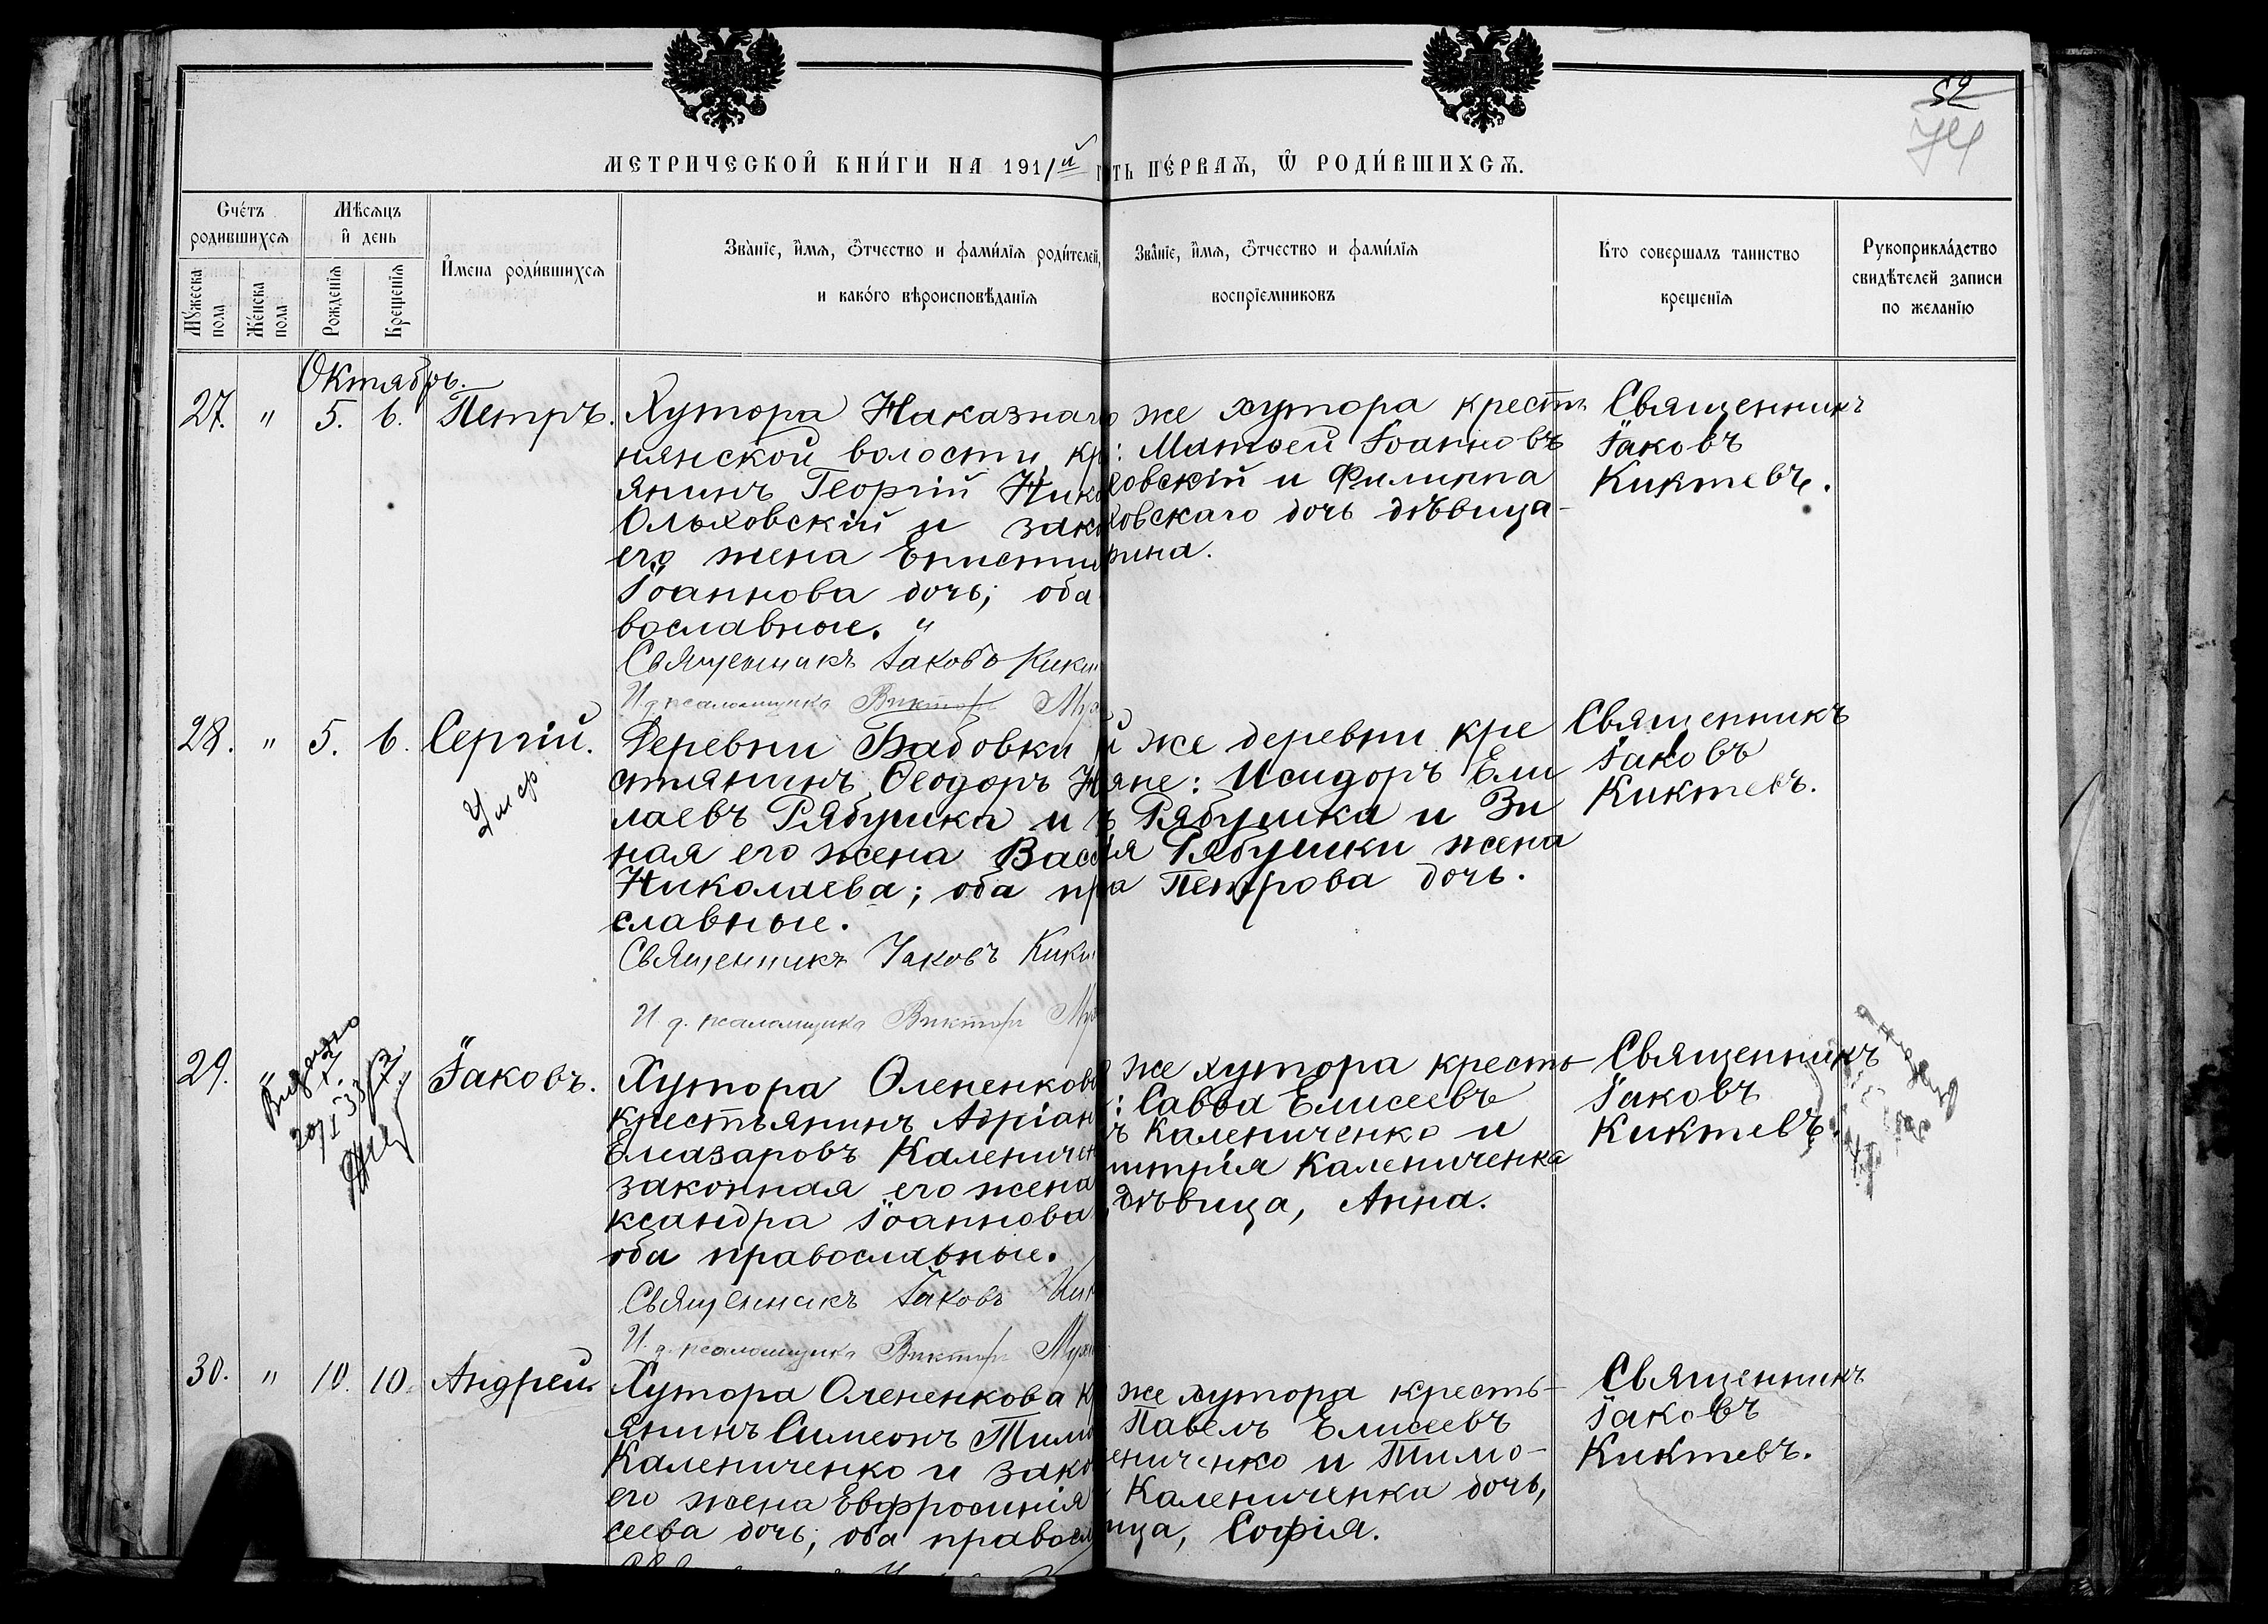 52
74
МЕТРИЧЕСКОЙ КНИ́ГИ НА 1911й
ть ПЕ́РВАѦ, Ѿ РОДИ́ВШИХСѦ.
Счéтъ родившихсѧ
Мѣсѧцъ и҆ день
Мꙋжеска пола
Жéнска пола
Рождéнїѧ
Крещéнїѧ
И҆мена роди́вшихсѧ
Звáнїе, и҆мѧ, ѻ҆тчество и фами́лїѧ роди́телей,
и какóго вѣроисповѣ́данїѧ
Звáнїе, и҆мѧ, ѻ҆тчество и фами́лїѧ
воспрїемниковъ
Кто совершалъ таинство
крещенїѧ
Рꙋкоприклáдство
свидѣ́телей записи
по желанїю
Октябрь.
27. " 5. 6. Петръ.
Хутора Наказнаго
нянской волости, кр
янинъ Георгій Нико
Ольховскій и зако
его жена Епистим
Іоаннова дочь; оба
вославные. "
Священникъ Іаковъ Кики
И. д. псаломщика Викторъ Му
же хутора кресть
: Матѳей Іоанновъ
ховскій и Филиппа
ховскаго дочь дѣвица
рина.
Священникъ
Іаковъ
Киктевъ.
28. " 5. 6. Сергій.
Умер.
Деревни Бабовки
стьянинъ Ѳеодоръ Н
лаевъ Рябушка и
ная его жена Васс
Николаева; оба пр
славные.
Священникъ Іаковъ Кики
И. д. псаломщика Викторъ Му
й же деревни кре
яне: Исидоръ Ели
ъ Рябушка и Зи
ія Рябушки жена
а Петрова дочь.
Священникъ
Іаковъ
Киктевъ.
29. " Іаковъ.
Видано
20/I 33
Хутора Олененкова
крестьянинъ Адріан
Елеазаровъ Калениченк
законная его жена
ксандра Іоаннова
оба православные.
Священникъ Іаковъ Кик
И. д. псаломщика Викторъ Му
же хутора кресть
: Савва Елисеевъ
ъ Калениченко и
митрія Калениченка
дѣвица, Анна.
Священникъ
Іаковъ
Киктевъ.
30. " 10. 10. Андрей.
Хутора Олененкова кр
янинъ Симеонъ Тимо
Калениченко и зако
его жена Евфросинія
сеева дочь; оба правосл
же хутора кресть-
Павелъ Елисеевъ
ениченко и Тимо-
Калениченка дочь,
ица, Софія.
Священникъ
Іаковъ
Киктевъ.